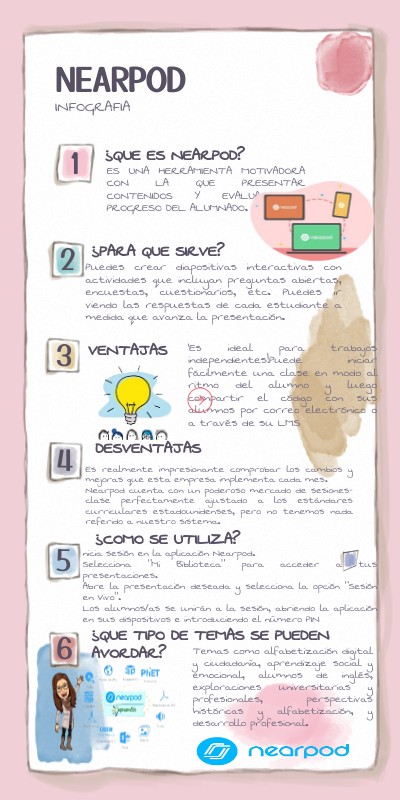 NEARPOD
INFOGRAFIA
1
¿QUE ES NEARPOD?
ES UNA HERRAMIENTA MOTIVADORA
CON LA QUE PRESENTAR
CONTENIDOS Y EVALU
PROGRESO DEL ALUMNADO.
2
¿PARA QUE SIRVE?
Puedes crear diapositivas interactivas con
actividades que incluyan preguntas abiertas,
encuestas, cuestionarios, etc. Puedes ir
viendo las respuestas de cada estudiante a
medida que avanza la presentación.
3
VENTAJAS
Es ideal para trabajos
independientes.Puede iniciar
fácilmente una clase en modo al
ritmo del alumno y luego
compartir el código con sus
alumnos por correo electrónico o
a través de su LMS
4
DESVENTAJAS
Es realmente impresionante comprobar los cambios y
mejoras que esta empresa implementa cada mes.
Nearpod cuenta con un poderoso mercado de sesiones-
clase perfectamente ajustado a los estándares
curriculares estadounidenses, pero no tenemos nada
referido a nuestro sistema.
5
¿COMO SE UTILIZA?
nicia sesión en la aplicación Nearpod.
Selecciona "Mi Biblioteca" para acceder a tus
presentaciones.
Abre la presentación deseada y selecciona la opción "Sesión
en Vivo".
Los alumnos/as se unirán a la sesión, abriendo la aplicación
en sus dispositivos e introduciendo el número PIN
6
¿QUE TIPO DE TEMAS SE PUEDEN
AVORDAR?
Temas como alfabetización digital
y ciudadanía, aprendizaje social y
emocional, alumnos de inglés,
exploraciones universitarias y
profesionales, perspectivas
históricas y alfabetización, y
desarrollo profesional.
PhET
nearpod
nearpod